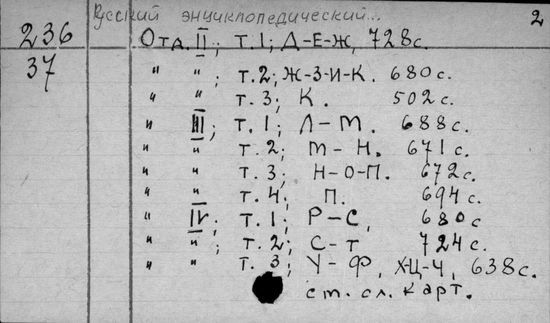 Русский энциклопедический... 2
236 Отд. II; т.1; Д-Е-Ж, 728с.
37 " " ; т.2; Ж-З-И-К. 680с.
" " т.3; К. 502с.
" III; т.1; Л-М. 688с.
" " т.2; М-Н. 671с.
" " т.3; Н-О-П. 672с.
" " т.4; П. 694с.
" IV; т.1; Р-С, 680с
" " ; т.2; С-Т 724с.
" " т.3; У-Ф, Х-Ц-Ч, 638с.
см. сл. карт.